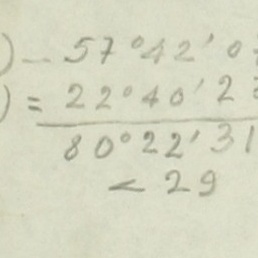 ) — 57°42'0
) = 22°40'2
80°22'31
< 29